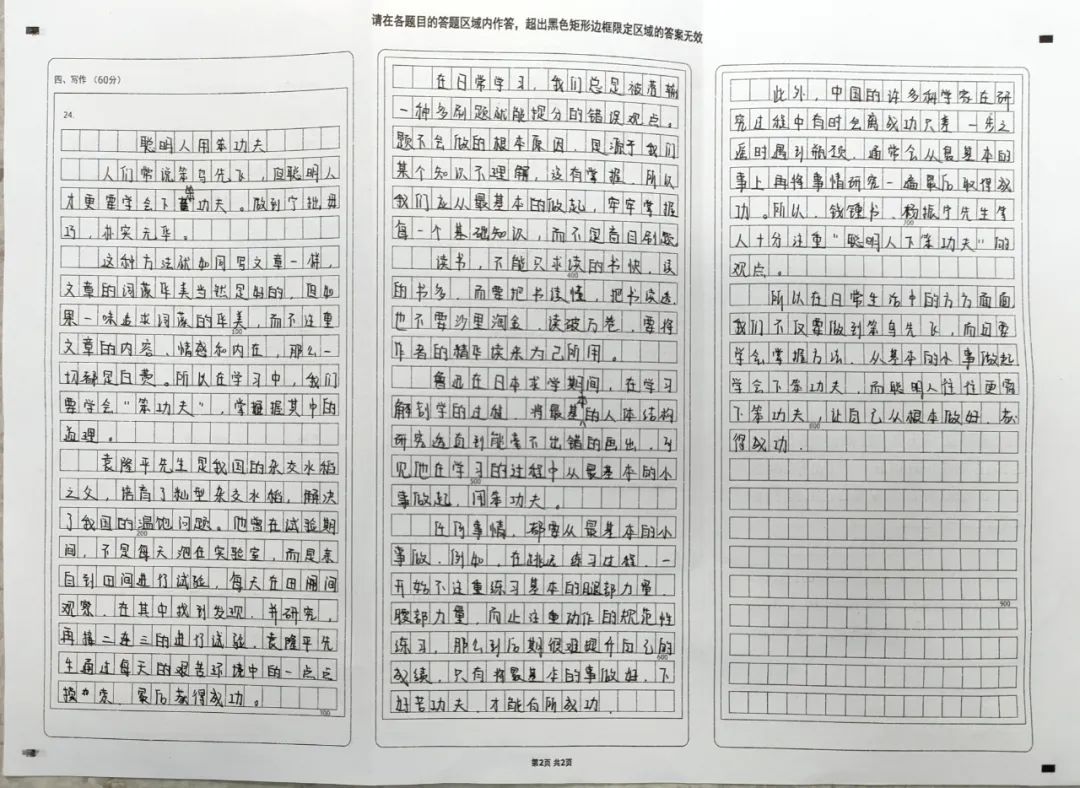 请在各题目的答题区域内作答，超出黑色矩形边框限定区域的答案无效
四、写作（60分）
24.
聪明人用笨功夫
人们常说笨鸟先飞，但聪明人
才更要学会下笨功夫。做到宁拙毋
巧，朴实无华。
这种方法就如同写文章一样，
文章的词藻华美当然是好的，但如
果一味追求词藻的华美，而不注重
100
文章的内容、情感和内在，那么一
切都是白费。所以在学习中，我们
要学会“笨功夫”，掌握握其中的
道理。
袁隆平先生是我国的杂交水稻
之父，培育了籼型杂交水稻，解决
了我国的温饱问题。他曾在试验期
200
间，不是每天泡在实验室，而是亲
自到田间进行试验，每天在田间
观察，在其中找到发现，并研究，
再接二连三的进行试验，袁隆平先
生通过每天的艰苦环境中的一点点
摸索，最后获得成功。
300
在日常学习，我们总是被灌输
一种多刷题就能提分的错误观点。
题不会做的根本原因，是源于我们
某个知识不理解，没有掌握，所以
我们应从最基本的做起，牢牢掌握
每一个基础知识，而不是盲目刷题
读书，不能只求读的书快，读
400
的书多，而要把书读懂，把书读透
也不要沙里淘金，读破万卷，要将
作者的精华读来为己所用。
鲁迅在日本求学期间，在学习
解剖学的过程，将最基本的人体结构
研究透直到能毫不出错的画出，可
见他在学习的过程中从最基本的小
500
事做起，用笨功夫。
任何事情，都要从最基本的小
事做，例如，在跳远练习过程，一
开始不注重练习基本的腿部力量，
腰部力量，而止注重动作的规范性
练习，那么到后期很难提升自己的
600
成绩，只有将最基本的事做好，下
好苦功夫，才能有所成功
此外，中国的许多科学家在研
究过程中有时会离成功只差一步之
遥时遇到瓶颈，通常会从最基本的
事上再将事情研究一遍最后取得成
功。所以，钱锺书，杨振宁先生等
700
人十分注重“聪明人下笨功夫”的
观点。
所以在日常生活中的方方面面
我们不仅要做到笨鸟先飞，而且要
学会掌握方法，从基本的小事做起
学会下笨功夫，而聪明人往往更需
下笨功夫，让自己从根本做好，获
800
得成功．
900
第2页 共2页